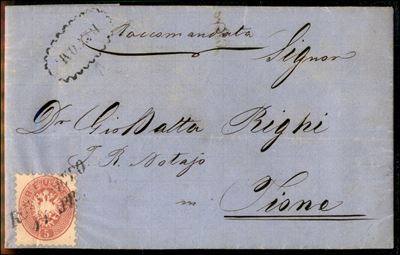 Raccomandata
Signor
Dr. GioBatta Righi
I. R. Notajo
in
Tione
5